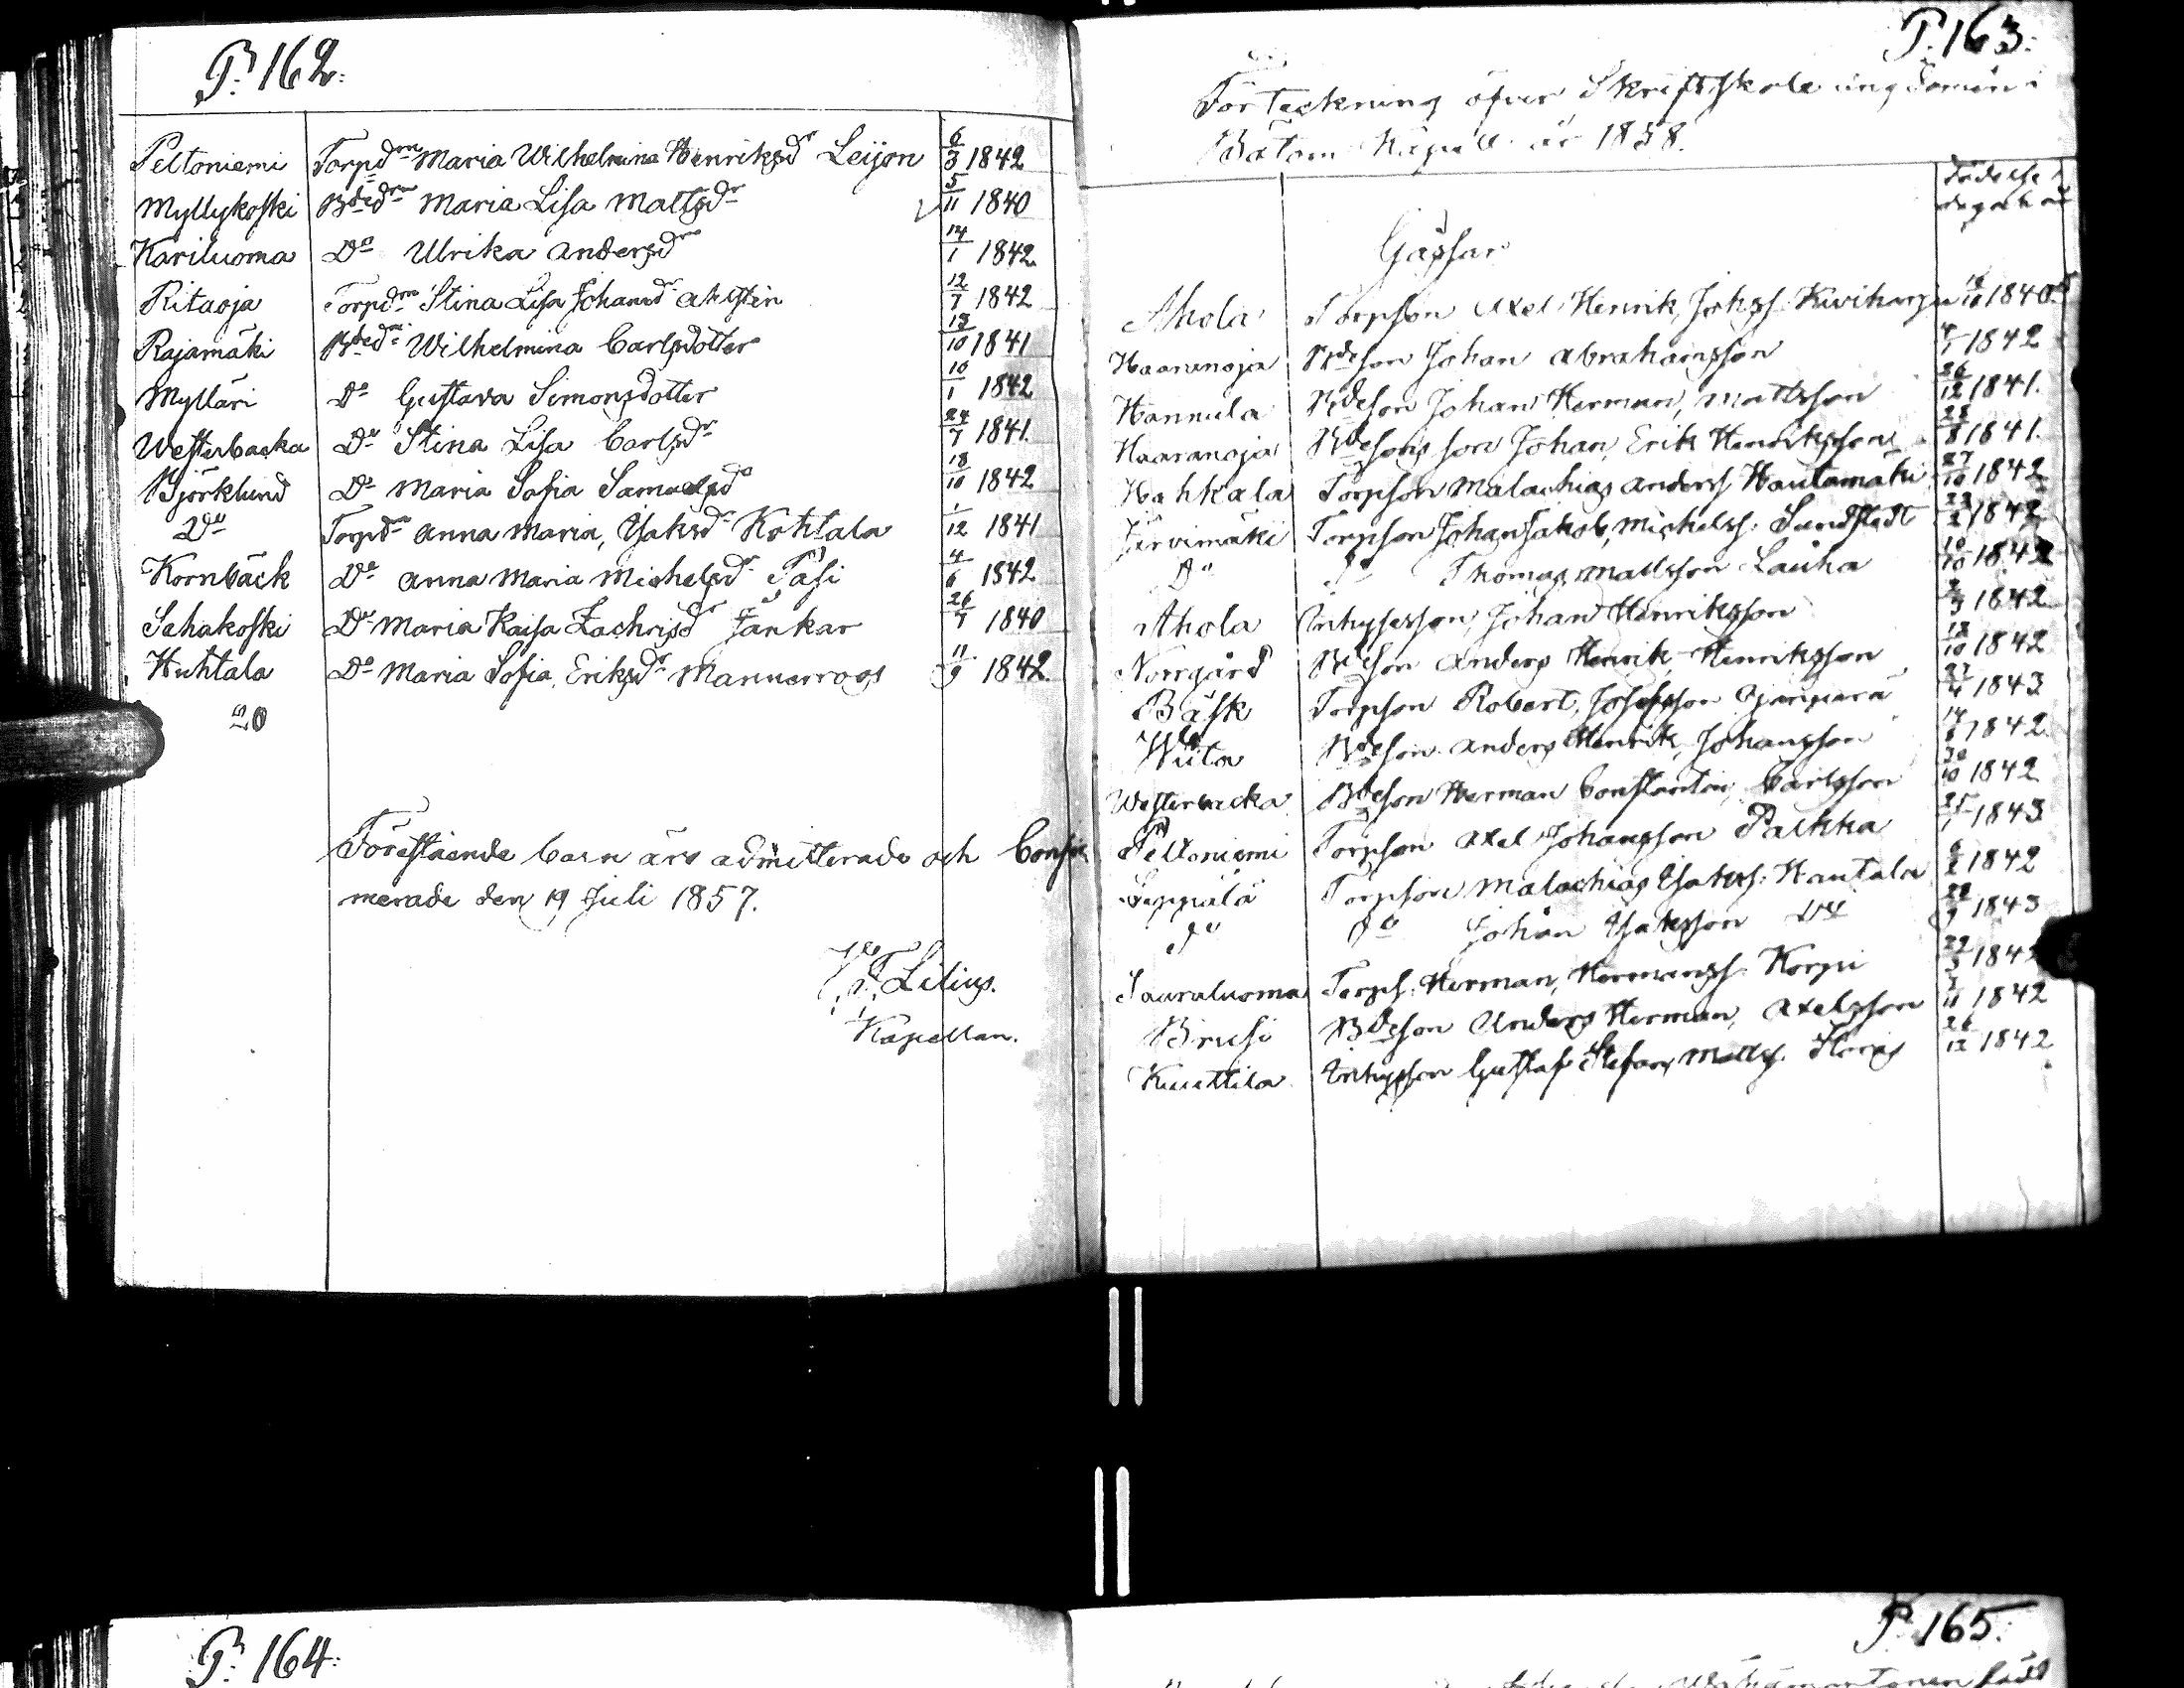 P. 162.
Peltoniemi Torpdrn Maria Wilhelmina Henriksdr Leijon 6/3 1842
Myllykoski Bdedrn Maria Lisa Mattsdr 5/11 1840
Kariluoma Do Ulrika Andersdr 14/1 1842
Ritaoja Torpdrn Stina Lisa Johansdr Ahlsten 12/7 1842
Rajamäki Bdedrn Wilhelmina Carlsdotter 18/10 1841
Mylläri Do Gustava Simonsdotter 10/1 1842
Westerbacka Do Stina Lisa Carlsdr 24/7 1841.
Björklund Do Maria Sofia Samuelsdr 18/10 1842
Do Torpdr Anna Maria, Isaksdr Kohtala 1/12 1841
Kornbäck Do Anna Maria Michelsdr Pasi 4/6 1842
Sahakoski Do Maria Kaisa Zachrisdr Jankar 26/7 1840
Huhtala Do Maria Sofia, Eriksdr Mannerroos 11/9 1842
20
Förestående barn äro admitterade och Confir
merade den 19 Juli 1857.
Lilius.
Kapellan.
P. 163.
Förteckning öfver Skriftskole ungdomen i
Kapell år 1858.
Födelse
dag och år
Gossar
Ahola Torpson Axel Henrik, Johss. Kiviharju 1840
Haaranoja Bdeson Johan Abrahamsson 1842
Hannula Bdeson Johan Herman, Mattsson 26/12 1841.
Haaranoja Bdesons son Johan Erik Henriksson 28/8 1841.
Hahkala Torpson Malachias Anderss Hautamäki 27/10 1842
Järvimäki Torpson Johan Jakob, Michelss: Sundstedt 1842
Do Do Thomas Mattsson Lauha 10/10 1842
Ahola Inhysesson, Johan Henriksson 1842
Norrgård Bdeson Anders Henrik Henriksson 18/10 1842
Bäsk Torpson Robert, Josefsson Ojanperä 1843
Wiita Bdeson Anders Henrik, Johansson 1842
Westerbacka Bdeson Herman Constantin, Carlsson 30/10 1842
Peltoniemi Torpson Axel Johansson Palkka 25/1 1843
Seppälä Torpson Malachias Isakss: Hautala 1842
Do Do Johan Isaksson 1843
Sauruluoma Torps: Herman, Hermanss. Korpi 1842
Brusi Bdeson Anders Herman, Axelsson 1842
Kuuttila Inhysson Gustaf Stefan, Mattss. 26/12 1842
P. 164.
P. 165.